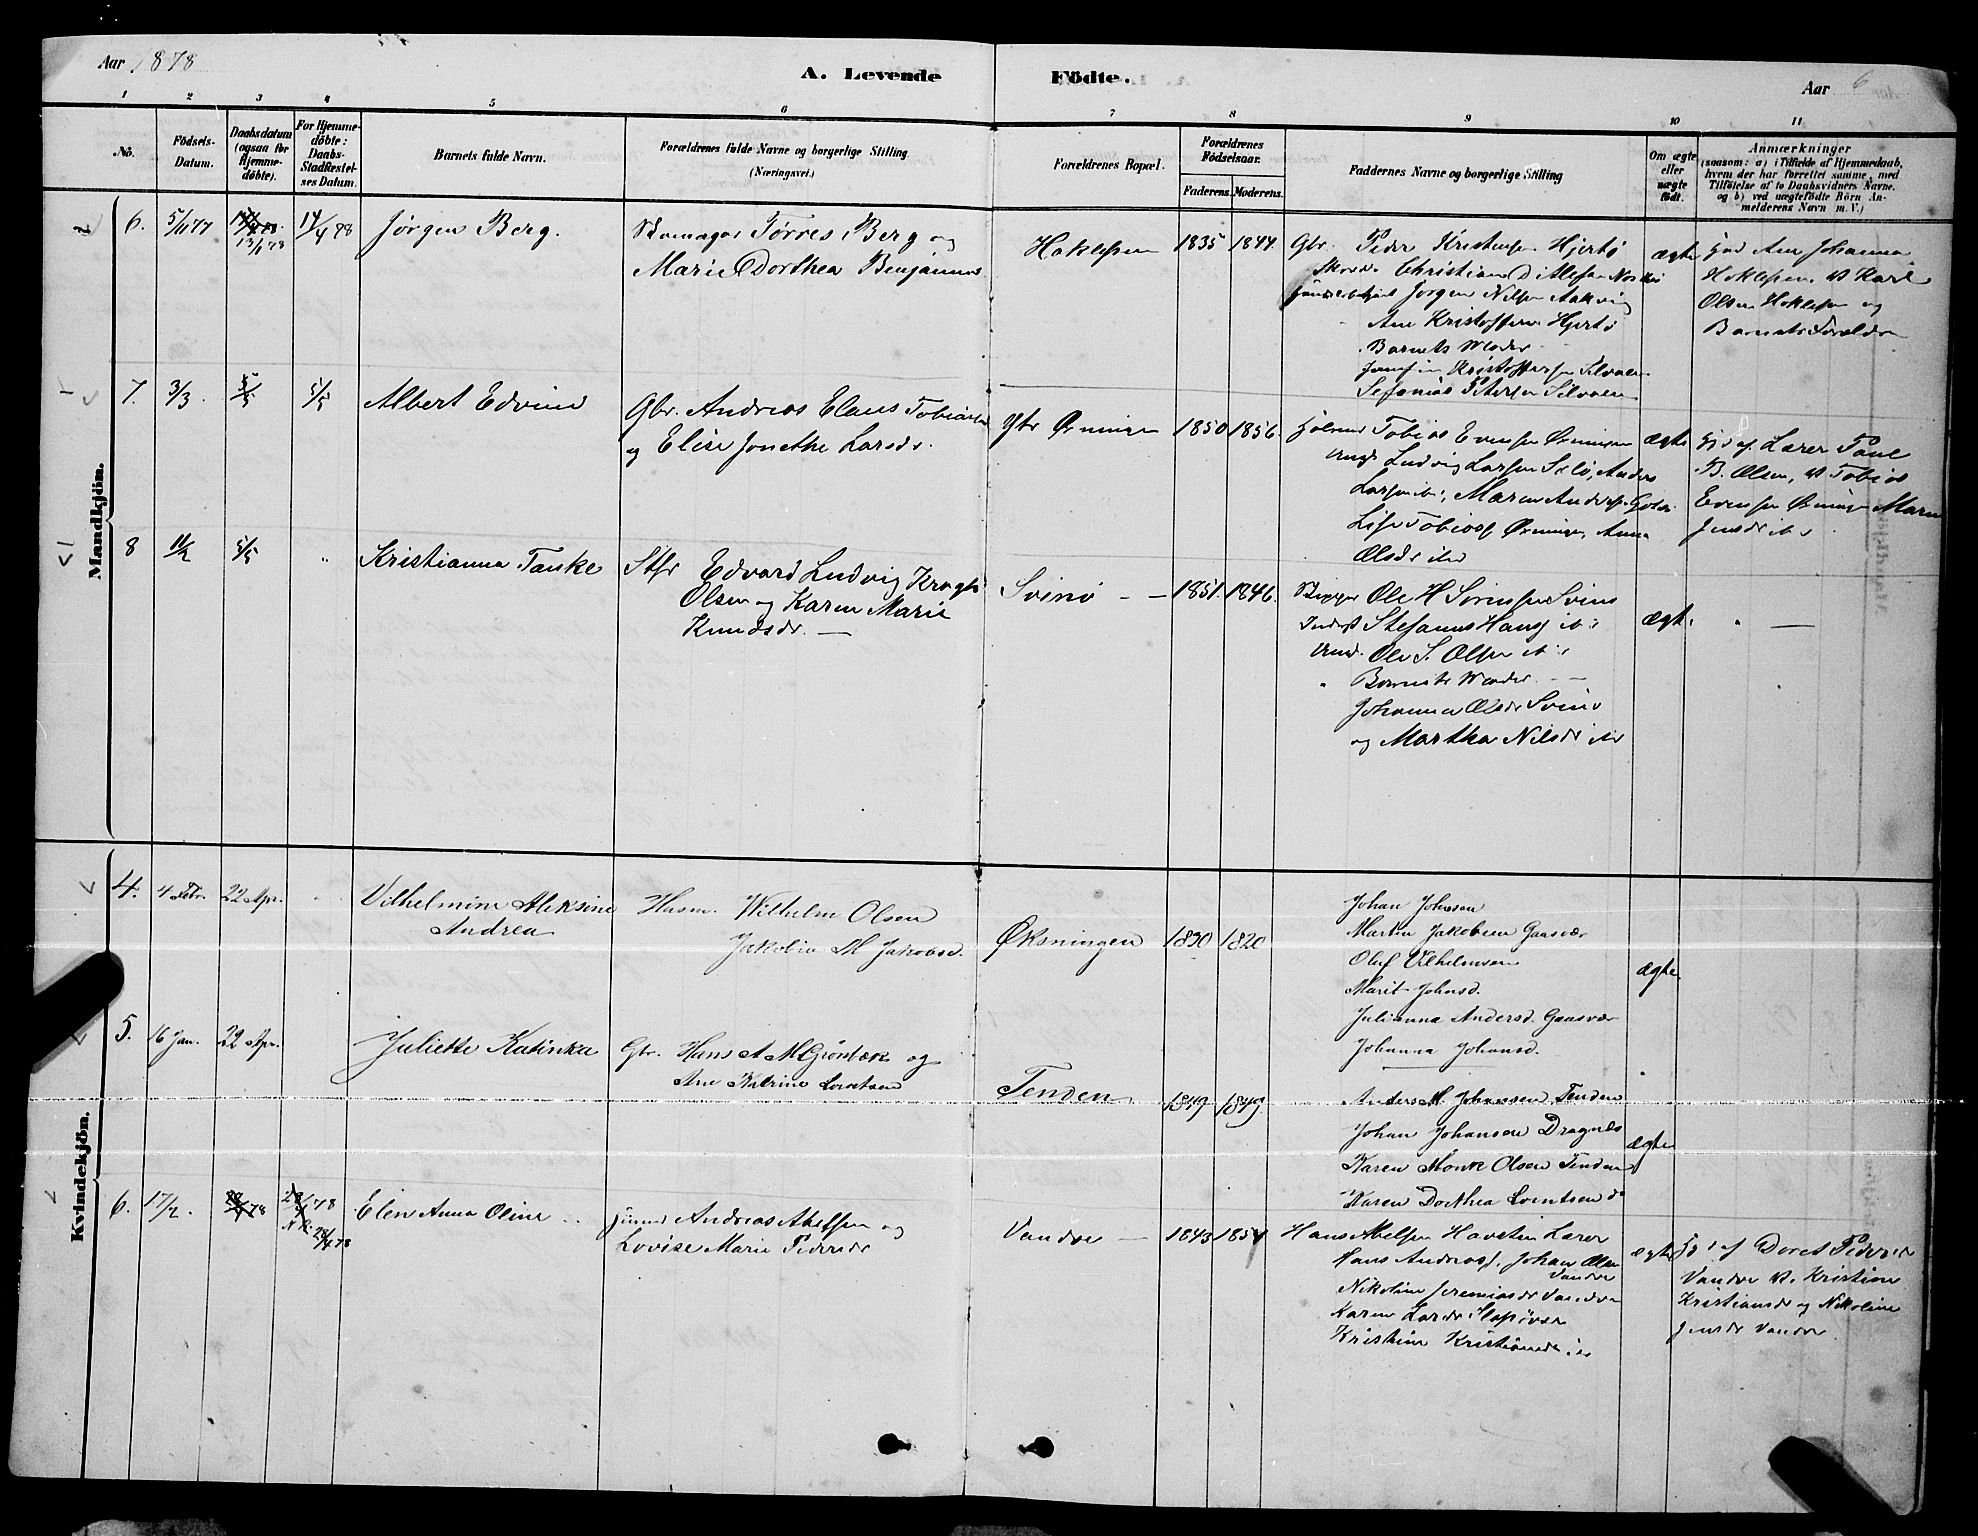 Aar 1878
A. Levende Födte.
Aar 6
1 2 3 4 5 6 7 8 9 10 11
No.
Födsels-Datum.
Daabsdatum (ogsaa for Hjemme-döbte).
For Hjemme-döbte: Daabs-Stadfæstel-ses Datum.
Barnets fulde Navn.
Forældrenes fulde Navne og borgerlige Stilling (Næringsvei.)
Forældrenes Bopæl.
Forældrenes Födselsaar.
Faderens. Moderens.
Faddernes Navne og borgerlige Stilling
Om ægte eller uægte födt.
Anmærkninger
(saasom: a) i Tilfælde af Hjemmedaab, hvem der har forrettet samme, med Tilföielse af to Daabsvidners Navne. og b) ved uægtefödte Börn Anmelderens Navn m. V.)
Mandkjön.
6. 5/11 77
13/1 78
14/4 78
Jørgen Berg.
Tørres Berg og
Marie Dorthea Benjamins
Haklepen
1835 1844.
Gbr. Peder Kristensen Hjertø
Jørgen Nilsen Aakvig
Ane Kristoffersen Hjertø
Barnets Moder
Kristoffersen Selvaer
Sefanias Petersen Selvaer
ægte
Ane Johanna
Haklepen, v Karl
Olsen Haklepen og
Barnets Forældre
7. 3/3.
5/5
Albert Edvin
Gbr. Andreas Elaus Tobiassen
og Elise Jonethe Larsdr.
1850 1856.
Tobias Evensen
Ludvig Larsen Selø, Anders
Larsen ib:, Maren Anders
ægte
Hjd af Lærer Paul
B. Olsen, v Tobias
Evensen Maren
Jensdr ib:
8 11/2 5/5 "
Kristianna Tanke
Edvard Ludvig
Olsen og Karen Marie
Knudsdr. —
Svinø — —
1851. 1846.
Ole H Sørensen Svinø
Stefanus Hans ib:
Ole S. Olsen ib:
" Barnets Moder —
Johanna Olsdr Svinø
og Martha Nilsdr ib
ægte
" —
Kvindekjön.
4. 4 Febr. 22 Apr.
Vilhelmine Aleksine
Andrea
Husm. Wilhelm Olsen
Jakobia M Jakobsd.
Øksningen
1830 1820
Johan Johnsen
Martin Jakobsen Gaasvær
Oluf Vilhelmsen
Marit Johnsd.
Julianna Andersd. Gaasvær
Johanna Johansd.
ægte
5. 16 Jan. 22 Apr.
Juliette Katinka
Gbr. Hans A M Grönbæk og
Ane Katrine Lorntsen
Tenden
1849 1849
Anders M. Johansen Tenden
Johan Johansen Dragnæs
Karen Monk Olsen Tenden
Karen Dorthea Lorntsen do
ægte
6. 17/2.
28/4 78
28/4 78
Elen Anna Oline
Andreas Abelsen og
Lovise Marie Pedersdr
Vandve —
1843 1854
Hans Abelsen Havsten Lærer
Hans Andreas, Johan Olsen
Vandve
Nikoline Jeremiasdr Vandve
Karen Larsdr
Kristine Kristiansdr ib
ægte
Hjd af Doret Pedersdr
Vandve v. Kristine
Kristiansdr og Nikoline
Jensdr Vandve.